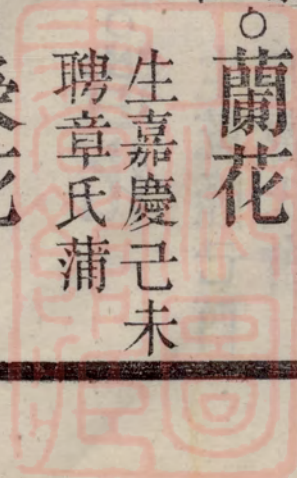 ○蘭花
生嘉慶己未
聘章氏蒲
花